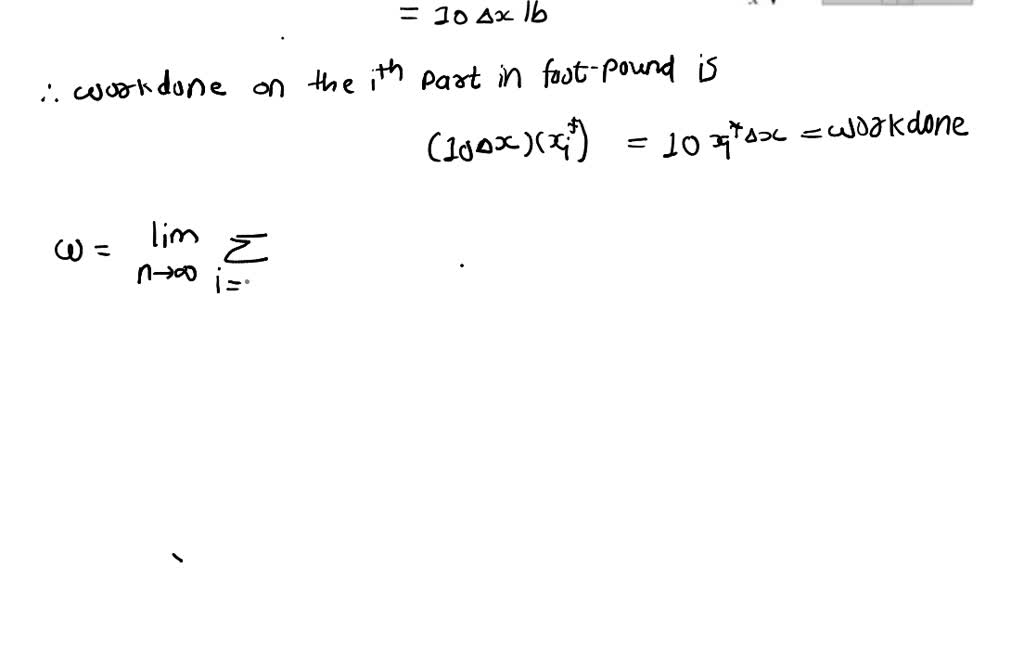 = 10 Δx lb
∴ workdone on the iᵗʰ part in foot-pound is
(10Δx)(xᵢ*) = 10 xᵢ* Δx = workdone
ω = lim n→∞ Σ i=